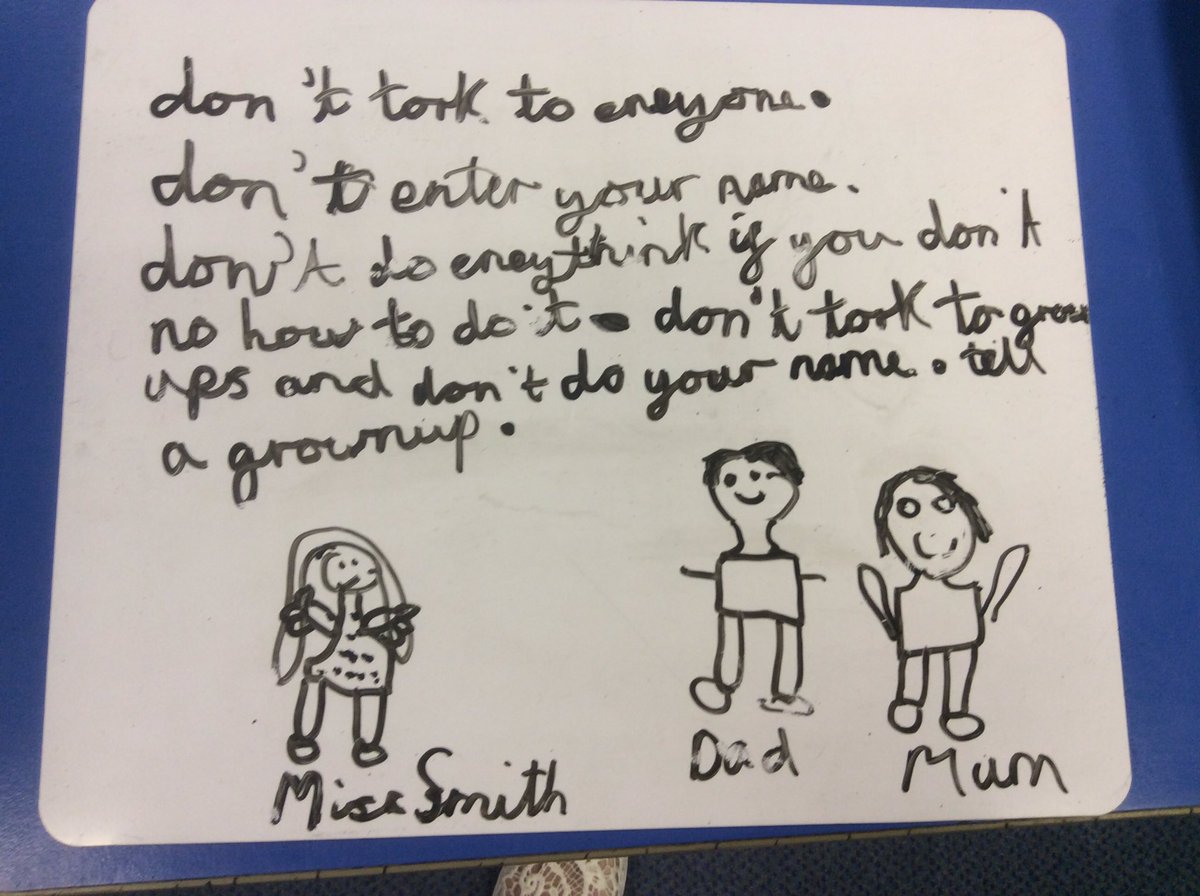 don't tork to eneyone.
don't enter your name.
don't do eneythink if you don't
no how to do it. don't tork to grow
ups and don't do your name. tell
a grownup.
Miss Smith
Dad
Mum